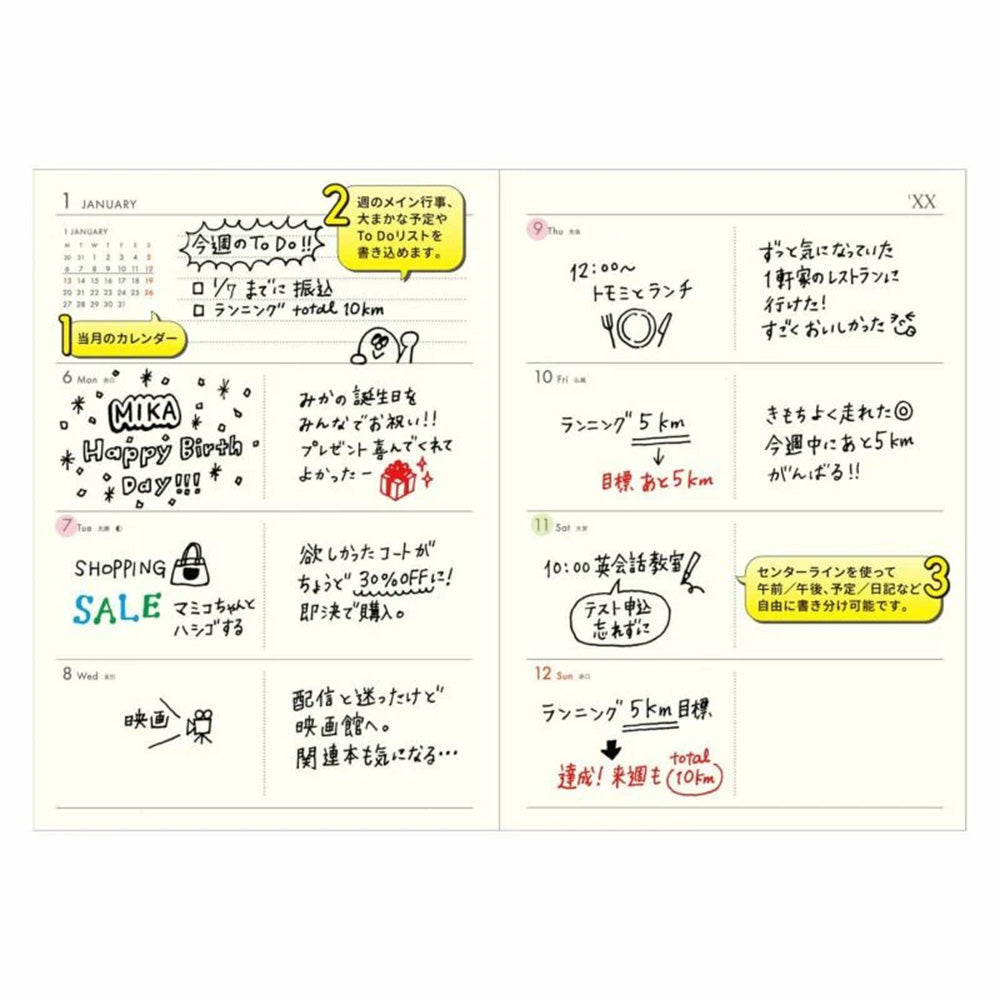 1 JANUARY
1 JANUARY
M T W T F S S
30 31 1 2 3 4 5
6 7 8 9 10 11 12
13 14 15 16 17 18 19
20 21 22 23 24 25 26
27 28 29 30 31
1 当月のカレンダー
今週のTo Do!!
□ 1/7 までに 振込
□ ランニング total 10km
2 週のメイン行事、
大まかな予定や
To Doリストを
書き込めます。
6 Mon 赤口
MIKA
Happy Birth
Day!!!
みかの誕生日を
みんなでお祝い!!
プレゼント喜んでくれて
よかったー
7 Tue 先勝
SHOPPING
SALE マミコちゃんと
ハシゴする
欲しかったコートが
ちょうど30%OFFに!
即決で購入。
8 Wed
映画
配信と迷ったけど
映画館へ。
関連本も気になる…
'XX
9 Thu 先負
12:00〜
トモミとランチ
ずっと気になっていた
1軒家のレストランに
行けた!
すごくおいしかった
10 Fri 仏滅
ランニング 5km
↓
目標 あと5km
きもちよく走れた◎
今週中にあと5km
がんばる!!
11 Sat 大安
10:00 英会話教室
テスト申込
忘れずに
センターラインを使って
午前/午後、予定/日記など
自由に書き分け可能です。
3
12 Sun 赤口
ランニング 5km目標
達成! 来週も total
10km